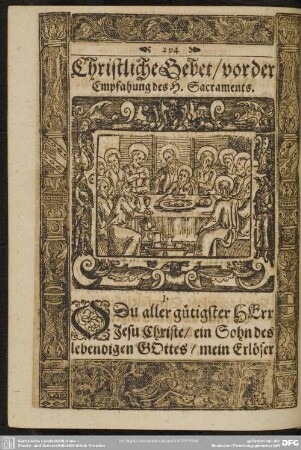 294
Christliche Gebet / vor der
Empfahung des H. Sacraments.
1.
O Du aller gütigster HErr
Jesu Christe / ein Sohn des
lebendigen GOttes / mein Erlöser